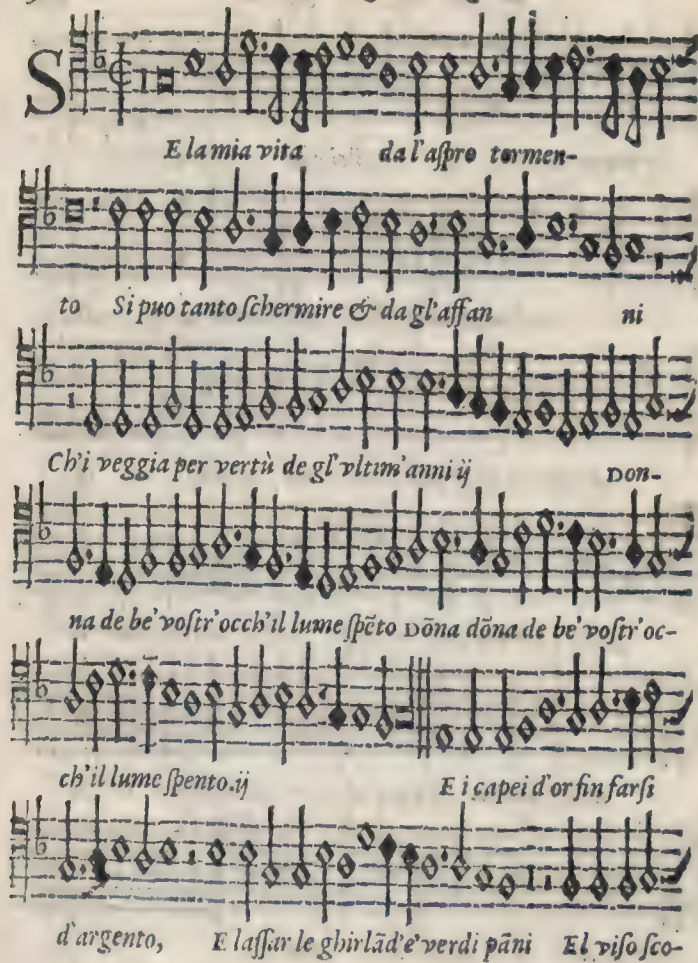 S
E la mia vita da l'aſpro tormen-
to Si puo tanto ſchermire & da gl'affan ni
Ch'i veggia per vertù de gl'vltim'anni ij Don-
na de be' voſtr'occh'il lume ſpẽto Dõna dõna de be' voſtr'oc-
ch'il lume ſpento. ij E i capei d'or fin farſi
d'argento, E laſſar le ghirlãd'e' verdi pãni El viſo ſco-